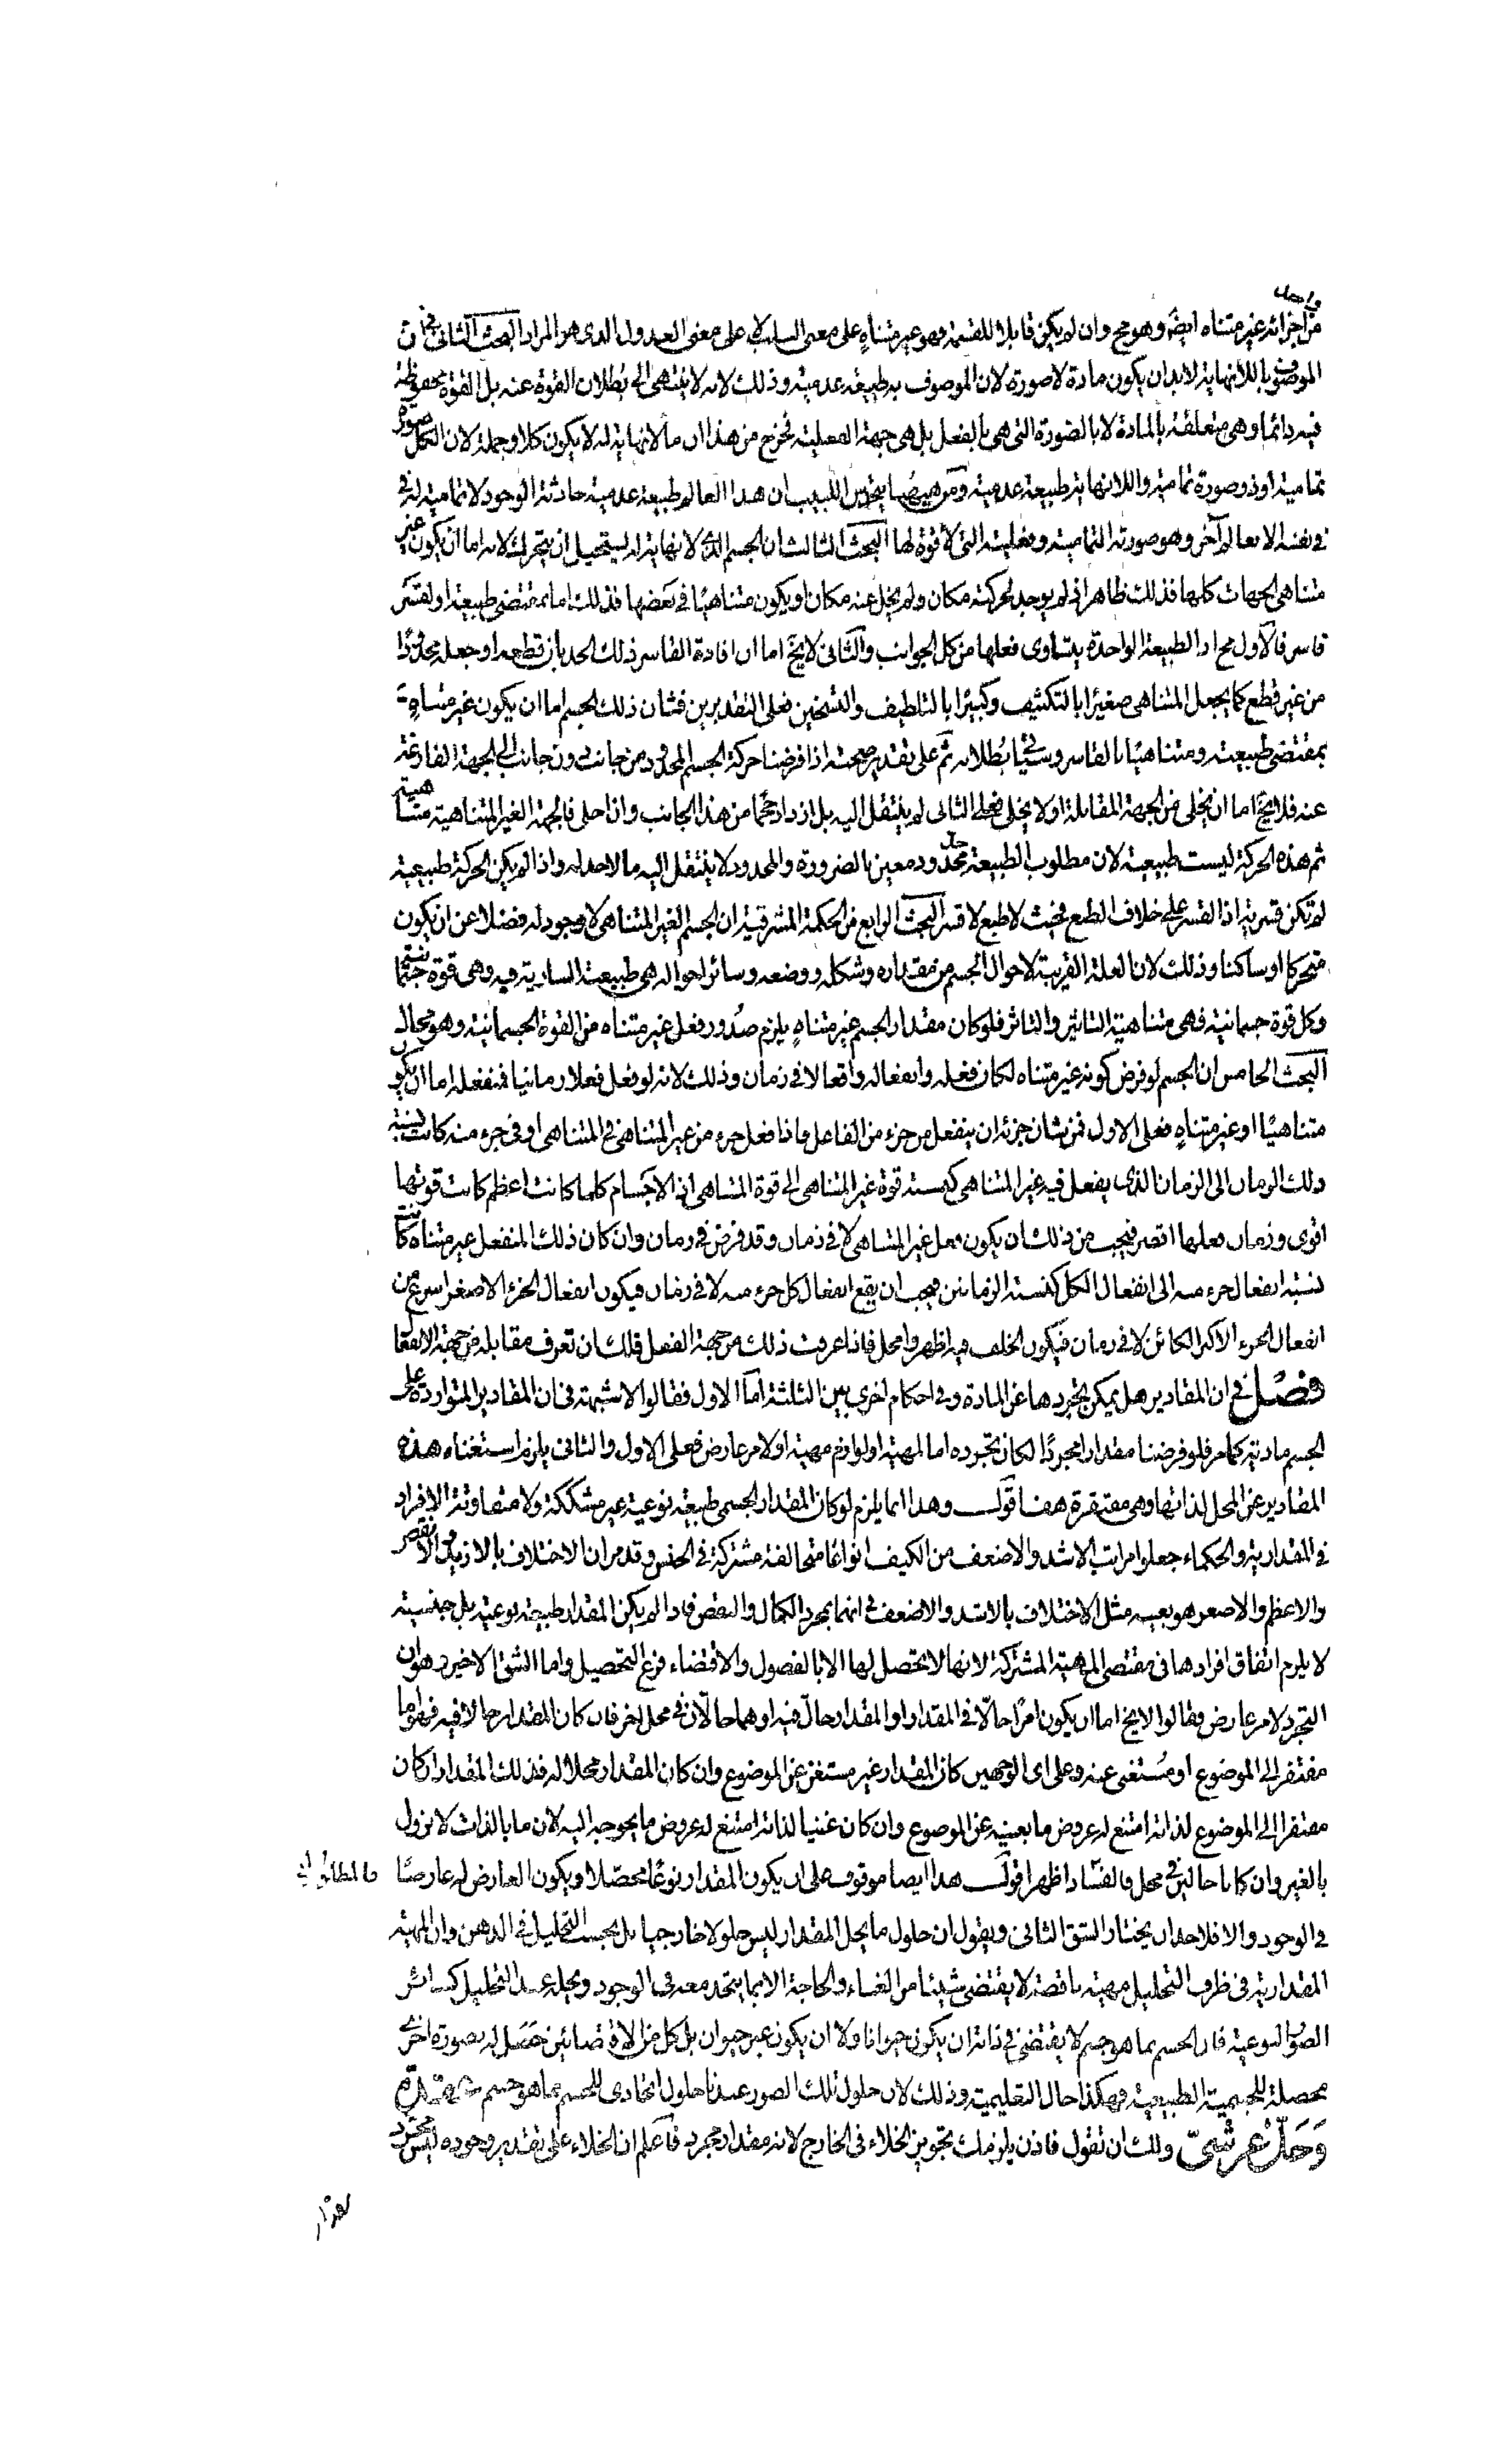 واحد
من اجزائه غير متناه ايضا وهو مح وان لم يكن قابلا للقسمة فهو غير متناهٍ على معنى السلب لا على معنى العدول الذى هو المراد البحث الثانى فى ان
الموصوف باللانهاية لابد ان يكون مادة لا صورة لان الموصوف به طبيعة عدمية وذلك لانه لا ينتهى الى بطلان القوة عنه بل القوة محفوظة
فيه دائما وهى متعلقة بالمادة لا بالصورة التى هى بالفعل بل هى جهة الفعلية فخرج من هذا ان ما لا نهاية له لا يكون كلا وجملة لان الكل صورة
تمامية او ذو صورة تمامية واللانهاية طبيعة عدمية ومن هيهنا يتفرس اللبيب ان هذا العالم طبيعة عدمية حادثة الوجود لا تمامية له فى
فى نفسه الا بعالم آخر وهو صورته التمامية وفعليته التى لا قوة لها البحث الثالث ان الجسم الذى لا نهاية له يستحيل ان يتحرك لانه اما ان يكون غير
متناهى الجهات كلها فذلك ظاهر اذ لم يوجد لحركته مكان ولم يخل عنه مكان او يكون متناهيا فى بعضها فذلك اما بمقتضى طبيعته او لقسر
قاسر فالاول مح اذ الطبيعة الواحدة يتساوى فعلها من كل الجوانب والثانى لا يخ اما ان افادة القاسر ذلك الحد بان قطعه او جعله محدودا
من غير قطع كما يجعل المتناهى صغيرا بالتكثيف وكبيرا بالتلطيف والتسخين فعلى التقديرين فشان ذلك الجسم اما ان يكون غير متناهٍ
بمقتضى طبيعته ومتناهيا بالقاسر وسياتى بطلانه ثم على تقدير صحته اذا فرضنا حركة الجسم المحدود من جانب دون جانب الى الجهة الفارغة
عنه فلا يخ اما ان يخلى من الجهة المقابلة او لا يخلى فعلى الثانى لم ينتقل اليه بل ازداد حجما من هذا الجانب وان اخلى فالجهة الغير المتناهية متناهية
ثم هذه الحركة ليست طبيعية لان مطلوب الطبيعة حد محدود معين بالضرورة والمحدود لا ينتقل اليه ما لا حد له واذا لم يكن الحركة طبيعية
لم تكن قسرية اذ القسر على خلاف الطبع فحيث لا طبع لا قسر البحث الرابع من الحكمة المشرقية ان الجسم الغير المتناهى لا وجود له فضلا عن ان يكون
متحركا او ساكنا وذلك لان العلة القريبة لاحوال الجسم من مقداره وشكله ووضعه وسائر احواله هى طبيعته السارية فيه وهى قوة جسمانية
وكل قوة جسمانية فهى متناهية التاثير والتاثر فلو كان مقدار الجسم غير متناهٍ يلزم صدور فعل غير متناه من القوة الجسمانية وهو محال
البحث الخامس ان الجسم لو فرض كونه غير متناه لكان فعله وانفعاله واقعا لا فى زمان وذلك لانه لو فعل فعلا زمانيا فمنفعله اما ان يكون
متناهيا او غير متناهٍ فعلى الاول فمن شان جزئه ان ينفعل من جزء من الفاعل فاذا فعل جزء من غير المتناهى فى المتناهى او فى جزء منه كانت نسبة
ذلك الزمان الى الزمان الذى يفعل فيه غير المتناهى كنسبة قوة غير المتناهى الى قوة المتناهى اذ الاجسام كلما كانت اعظم كانت قوتها
اقوى وزمان فعلها اقصر فيجب من ذلك ان يكون فعل غير المتناهى لا فى زمان وقد فرض فى زمان وان كان ذلك المنفعل غير متناه كانت
نسبة انفعال جزء منه الى انفعال الكل كنسبة الزمانين فيجب ان يقع انفعال كل جزء منه لا فى زمان فيكون انفعال الجزء الاصغر اسرع من
انفعال الجزء الاكبر الكائن لا فى زمان فيكون الخلف فيه اظهر وامحل فاذا عرفت ذلك من جهة الفعل فلك ان تعرف مقابله من جهة الانفعال
فصل فى ان المقادير هل يمكن تجردها عن المادة وفى احكام اخرى بين الثلثة اما الاول فقالوا لا شبهة فى ان المقادير المتواردة على
الجسم مادية كما مر فلو فرضنا مقدارا مجردا لكان تجرده اما لمهيته او لوازم مهيته او لامر عارض فعلى الاول والثانى يلزم استغناء هذه
المقادير عن المحل لذاتها وهى مفتقرة هف اقول وهذا انما يلزم لو كان المقدار الجسمى طبيعة نوعية غير مشككة ولا متفاوتة الافراد
فى المقدارية والحكماء جعلوا مراتب الاشد والاضعف من الكيف انواعا متخالفة مشتركة فى الجنس وقد مر ان الاختلاف بالازيد والانقص
والاعظم والاصغر هو بعينه مثل الاختلاف بالاشد والاضعف فى انهما بمجرد الكمال والنقص فاذا لم يكن المقدار طبيعة نوعية بل جنسية
لا يلزم اتفاق افرادها فى مقتضى المهية المشتركة لانها لا يتحصل لها الا بالفصول والاقتضاء فرع التحصيل واما الشق الاخير وهو ان
التجرد لامر عارض فقالوا لا يخ اما ان يكون امرا حالا فى المقدار او المقدار حال فيه او هما حالان فى محل اخر فان كان المقدار حالا فيه فهو اما
مفتقر الى الموضوع او مستغنى عنه وعلى اى الوجهين كان المقدار غير مستغن عن الموضوع وان كان المقدار محلا له فذلك المقدار ان كان
مفتقرا الى الموضوع لذاته امتنع له عروض ما يغنيه عن الموضوع وان كان غنيا لذاته امتنع له عروض ما يحوجه اليه لان ما بالذات لا يزول
بالغير وان كانا حالين فى محل فالفساد اظهر اقول هذا ايضا موقوف على ان يكون المقدار نوعا محصلا ويكون العارض له عارضا
فى الوجود والا فلاحد ان يختار الشق الثانى ويقول ان حلول ما يحل المقدار ليس حلولا خارجيا بل بحسب التحليل فى الذهن وان المهية
المقدارية فى ظرف التحليل مهية ناقصة لا يقتضى شيئا من الغناء والحاجة الا بما يتحد معه فى الوجود ويحله عند التحليل كسائر
الصور النوعية فان الجسم بما هو جسم لا يقتضى فى ذاته ان يكون حيوانا ولا ان يكون غير حيوان بل كل من الاقتضائين حصل له بصورة اخرى
محصلة للجسمية الطبيعية فهكذا حال التعليمية وذلك لان حلول تلك الصور عندنا حلول اتحادى للجسم بما هو جسم
وحل عرشى ولك ان تقول فاذن يلزمك تجويز الخلاء فى الخارج لانه مقدار مجرد فاعلم ان الخلاء على تقدير وجوده ليس مجرد
مقدار